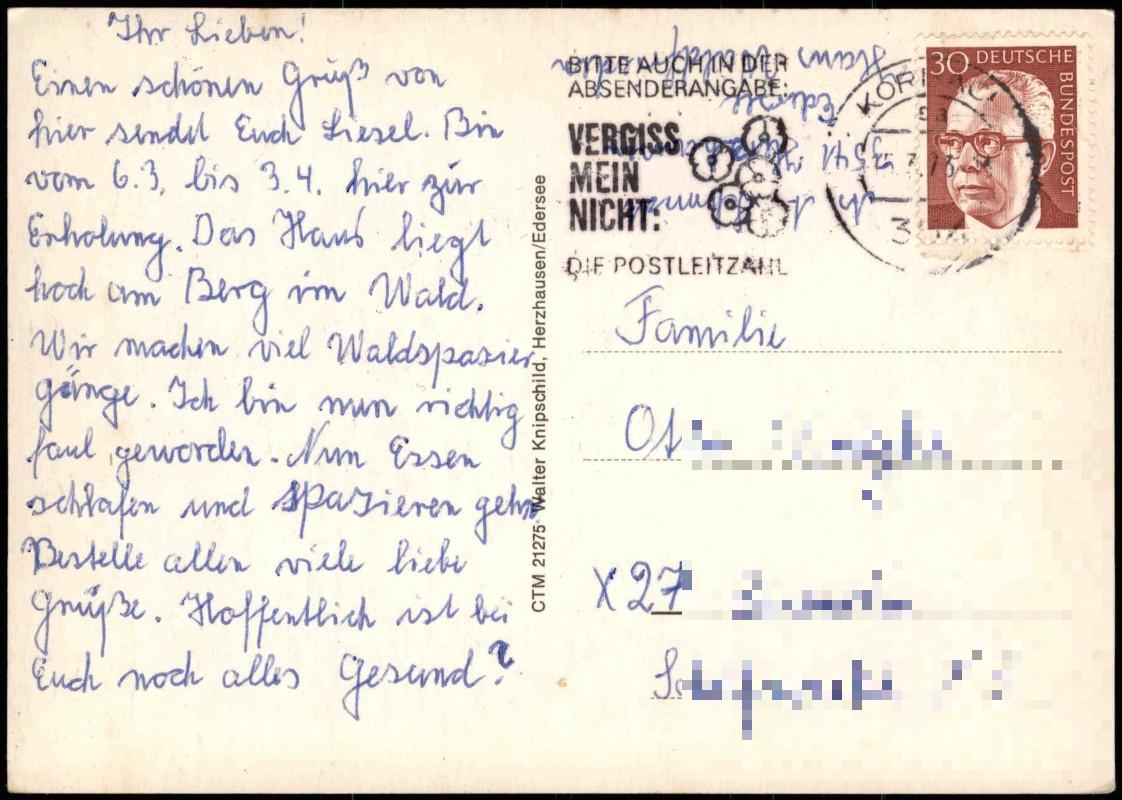 Ihr Lieben!
Einen schönen Gruß von
hier sendet Euch Liesel. Bin
vom 6.3. bis 3.4. hier zur
Erholung. Das Haus liegt
hoch am Berg im Wald.
Wir machen viel Waldspazier
gänge. Ich bin nun richtig
faul geworden. Nun Essen
schlafen und spazieren gehn
Bestelle allen viele liebe
Grüße. Hoffentlich ist bei
Euch noch alles Gesund?
CTM 21275 Walter Knipschild, Herzhausen/Edersee
BITTE AUCH IN DER
ABSENDERANGABE:
VERGISS
MEIN
NICHT:
DIE POSTLEITZAHL
Haus
Edersee
3541
30 DEUTSCHE
BUNDESPOST
Familie
X 27